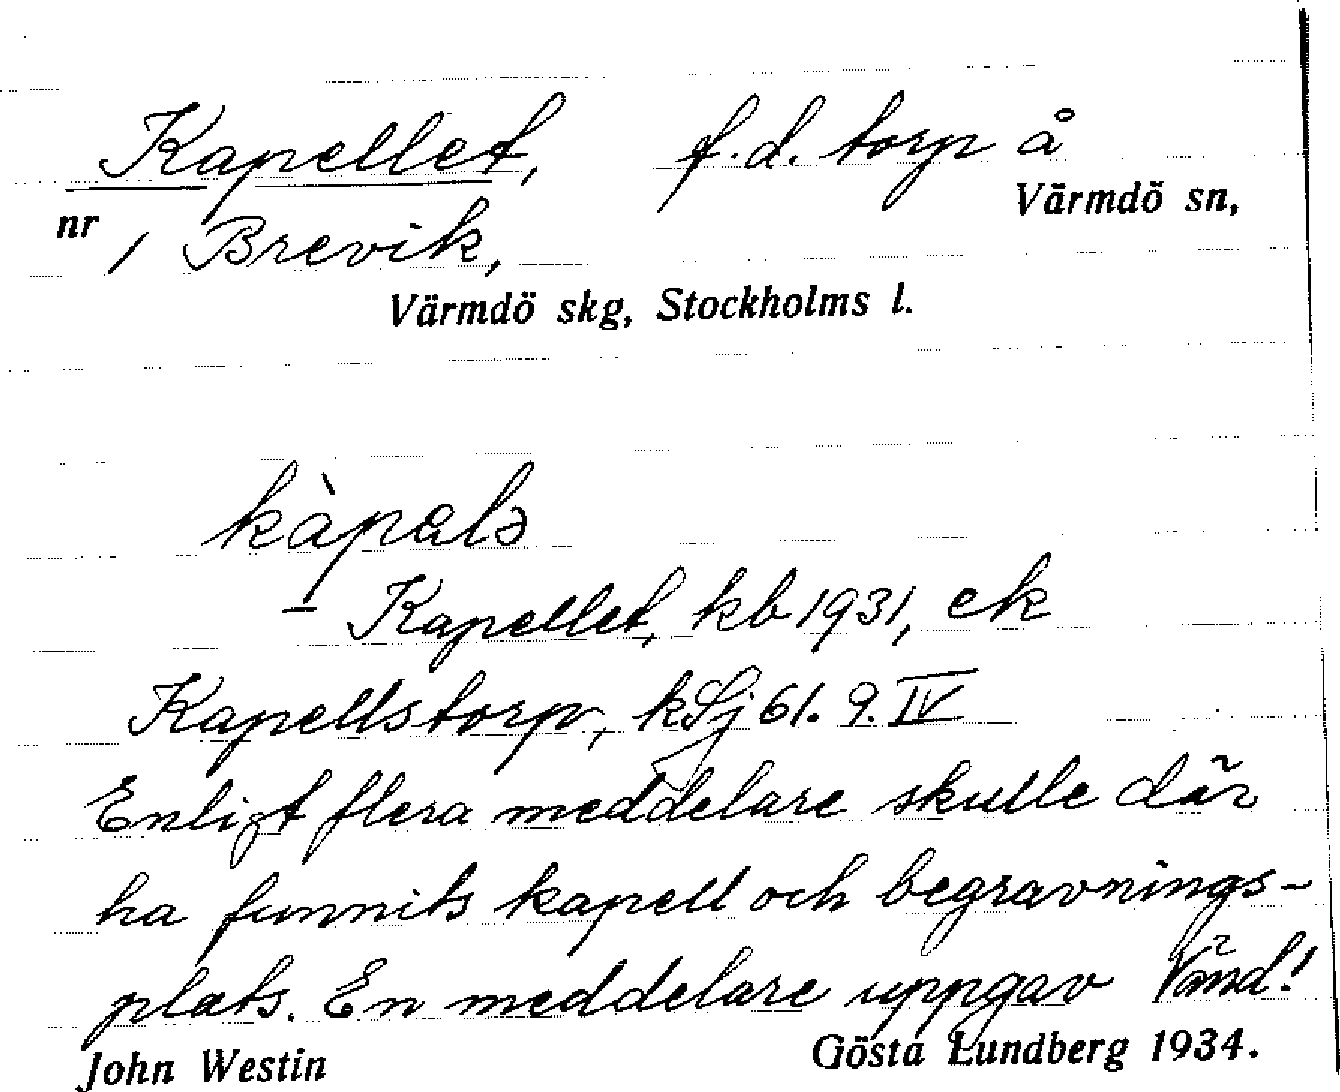 Kapellet, f.d. torp å
Värmdö sn,
nr 1 Brevik,
Värmdö skg, Stockholms l.
kàpalə
Kapellet, kb 1931, ek
Kapellstorp, kSj 61. 9. IV
Enligt flera meddelare skulle där
ha funnits kapell och begravnings-
plats. En meddelare uppgav Vänd!
John Westin Gösta Lundberg 1934.